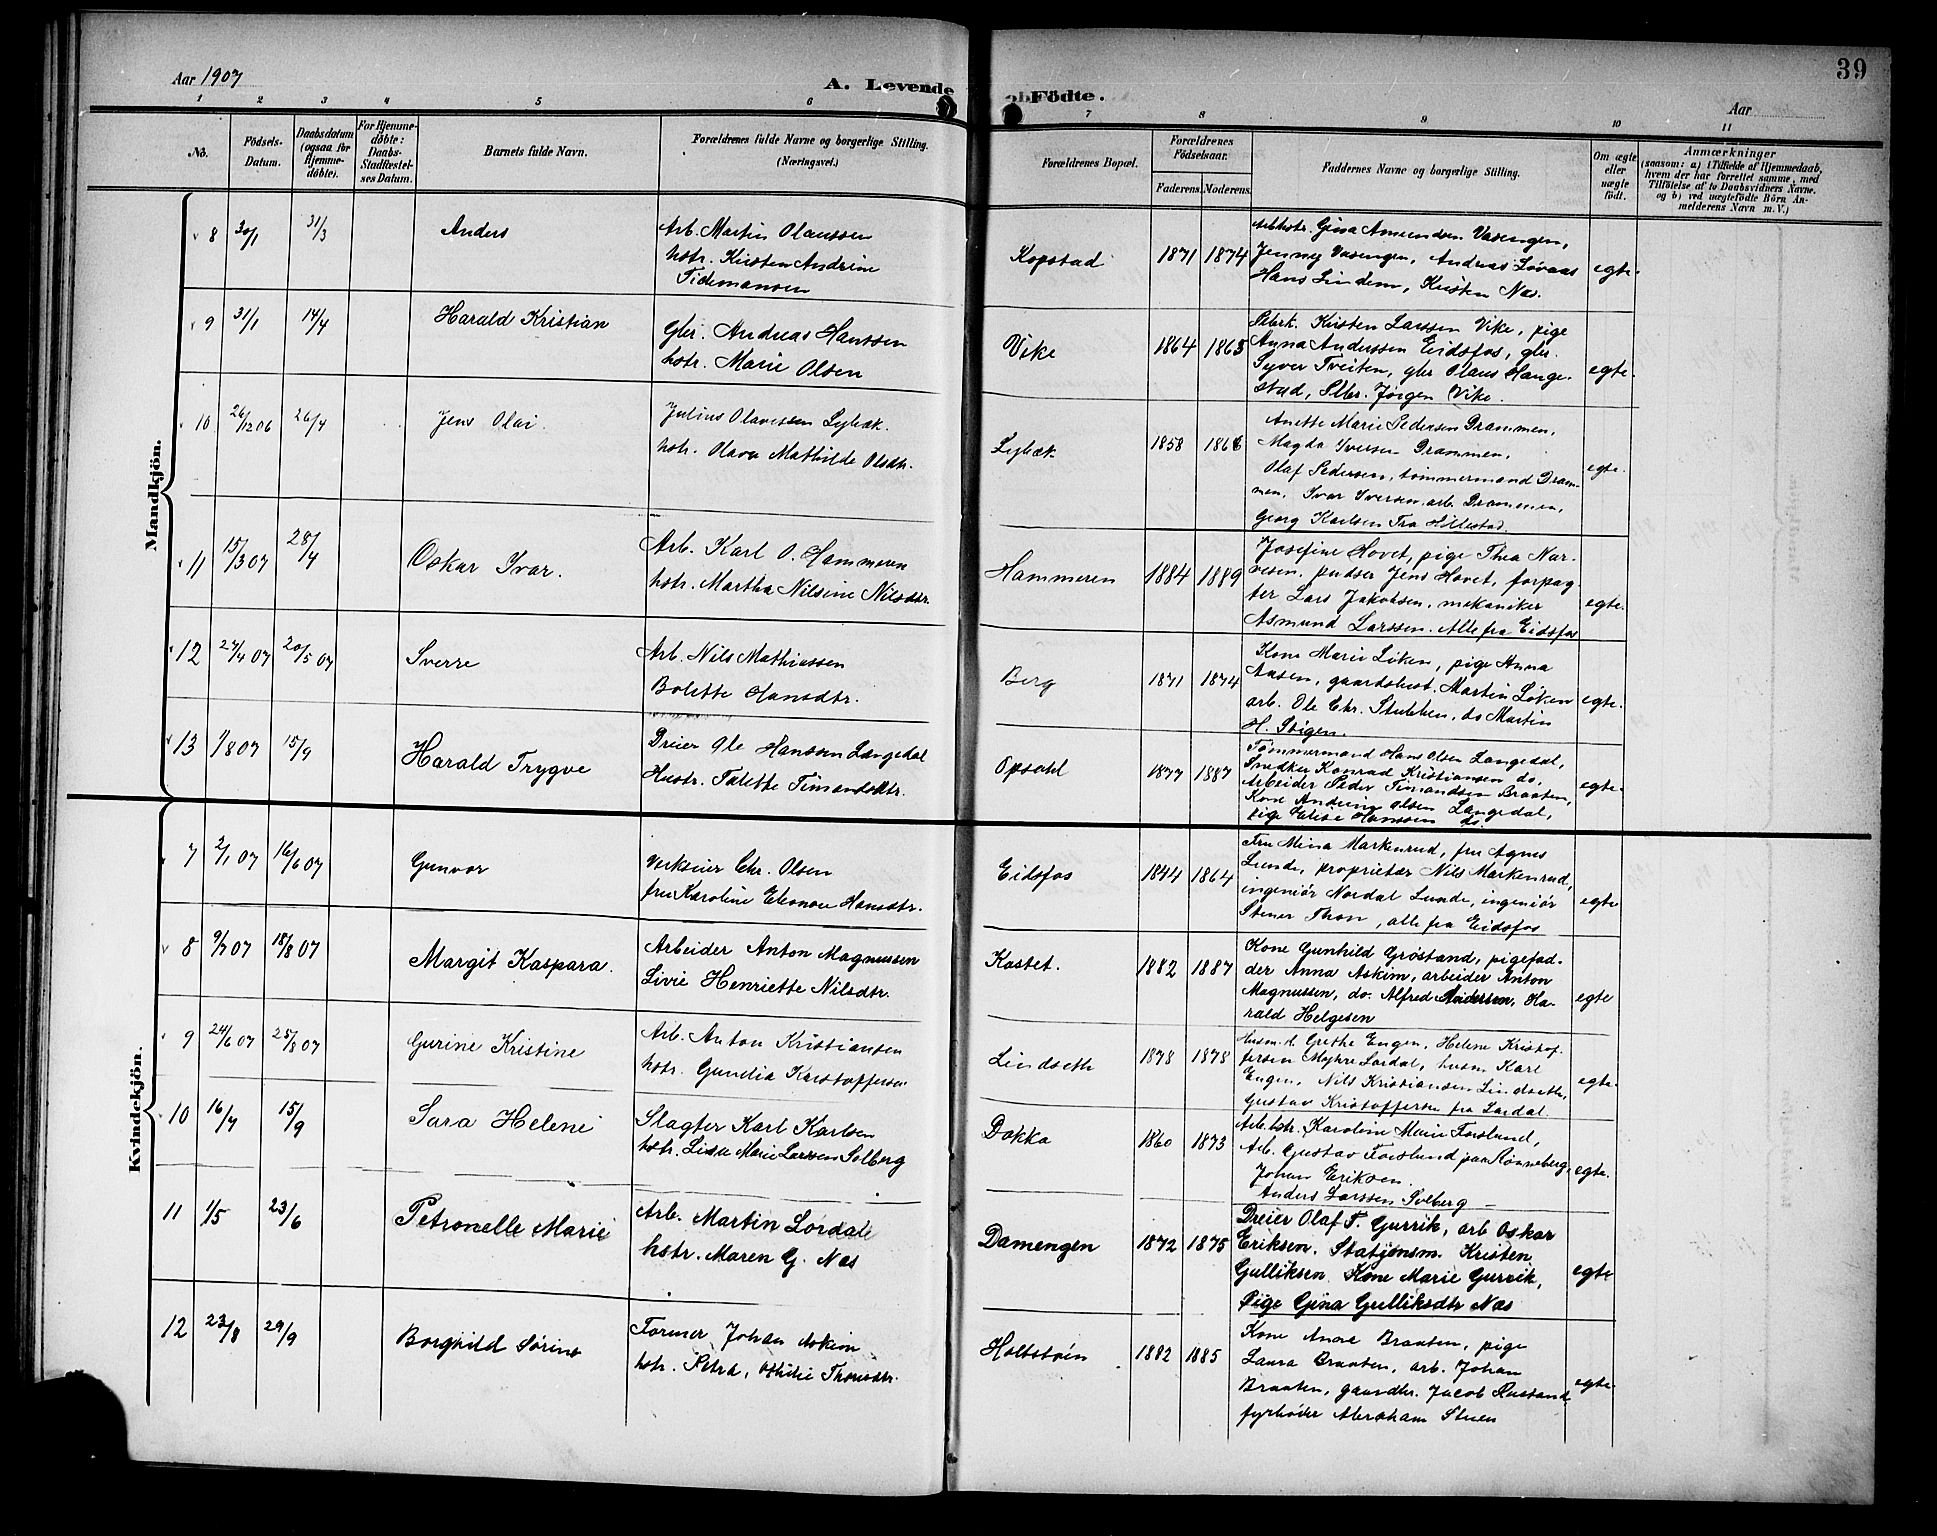 Aar 1907
A. Levende
Födte.
39
Aar
1 2 3 4 5 6 7 8 9 10 11
No.
Födsels-
Datum.
Daabsdatum
(ogsaa for
Hjemme-
döbte).
For Hjemme-
döbte:
Daabs-
Stadfæstel-
ses Datum.
Barnets fulde Navn.
Forældrenes fulde Navne og borgerlige Stilling.
(Næringsvei.)
Forældrenes Bopæl.
Forældrenes
Födselsaar.
Faderens. Moderens.
Faddernes Navne og borgerlige Stilling.
Om ægte
eller
uægte
födt.
Anmærkninger
(saasom: a) i Tilfælde af Hjemmedaab,
hvem der har forrettet samme, med
Tilföielse af to Daabsvidners Navne.
og b) ved uægtefödte Börn An-
melderens Navn m. V.)
Mandkjön.
8 30/1 31/3 Anders
Arb. Martin Olaussen
hstr. Kirsten Andrine
Tidemansen
Kopstad 1871 1874
Arbhstr. Gina Amundsen Vasengen,
Jenny Vasengen, Andreas Løvaas
Hans Lindem, Kirsten Næs.
egte.
9 31/1 14/4 Harald Kristian
Gbr. Andreas Hanssen
hstr. Marie Olsen
Vike 1864 1865
Kirsten Larssen Vike, pige
Anna Anderssen Eidsfos, gbr.
Syver Tveiten, gbr Olaus Hange-
stad, Jørgen Vike.
egte.
10 26/12 06 26/4 Jens Olai.
Julius Olavessen Lybæk.
hstr. Olava Mathilde Olsdtr.
Lybæk 1858 1866
Anette Marie Pedersen Drammen,
Magda Iversen Drammen,
Olaf Pedersen, tømmermand Dram-
men, Ivar Iversen, arb. Drammen,
Georg Karlsen Fra Hillestad
egte.
11 15/3 07 28/4 Oskar Ivar.
Arb. Karl O. Hammeren
hstr. Martha Nilsine Nilsdtr.
Hammeren 1884 1889
Josefine Hovet, pige Thea Nar-
vesen, pudser Jens Hovet, forpag-
ter Lars Jakobsen, mekaniker
Asmund Larssen. Alle fra Eidsfos
egte.
12 27/4 07 20/5 07 Sverre
Arb. Nils Mathiassen
Bolette Hansdtr.
Berg 1871 1874
Kone Marie Løken, pige Anna
Aasen, gaardsbest. Martin Løken
arb. Ole Chr. Stubben, do Martin
H. Stigen.
egte.
13 1/8 07 15/9 Harald Trygve
Dreier Ole Hanssen Langedal
Hustr. Talette Timandsdtr.
Opsahl 1877 1887
Tømmermand Hans Olsen Langedal,
Snedker Konrad Kristiansen do,
Arbeider Peder Timandsen Braaten,
Kone Andrine Olsen Langedal,
pige Elise Hanssen do.
egte.
Kvindekjön.
7 2/1 07 16/6 07 Gunvor
Verkseier Chr. Olsen
fru Karoline Eleonore Hansdtr.
Eidsfos 1844 1864
Fru Mina Markenrud, fru Agnes
Lunde, proprietær Nils Markenrud,
ingeniør Nordal Lunde, ingeniør
Stener Thon, alle fra Eidsfos
egte
8 9/7 07 18/8 07 Margit Kaspara.
Arbeider Anton Magnussen
Livie Henriette Nilsdtr.
Kastet. 1882 1887
Kone Gunhild Grøstand, pigefad-
der Anna Askim, arbeider Anton
Magnussen, do. Alfred Andersen, Ha-
rald Helgesen
egte
9 24/6 07 25/8 07 Gurine Kristine
Arb. Anton Kristiansen
hstr. Gundia Kristoffersen
Lindseth 1878 1878
Husm.d. Grethe Engen, Helene Kristof-
fersen Myhre Lardal, husm Karl
Engen, Nils Kristiansen Lindseth,
Gustav Kristoffersen fra Lardal
egte.
10 16/7 15/9 Sara Helene
Slagter Karl Karlsen
hstr. Lisa Marie Larssen Solberg
Dokka 1860 1873
Arb.hstr. Karoline Marie Forslund,
Arb. Gustav Forslund paa Rønneberg,
Johan Eriksen.
Anders Larssen Solberg –
egte.
11 1/5 23/6 Petronelle Marie
Arb. Martin Lordal
hstr. Maren G. Næs
Damengen 1872 1875
Dreier Olaf T. Gurrik, arb Oskar
Eriksen. Statjonsm. Kristen
Gulliksen Kone Marie Gurrik,
Pige Gina Gulliksdtr Næs
egte
12 23/8 29/9 Borghild Sørine
Former Johan Askim
hstr. Petra, Othilie Thorsdtr.
Holtstøin 1882 1885
Kone Anne Braaten, pige
Laura Braaten, arb. Johan
Braaten, gaardbr. Jacob Rustand
fyrbøder Abraham Stuen
egte